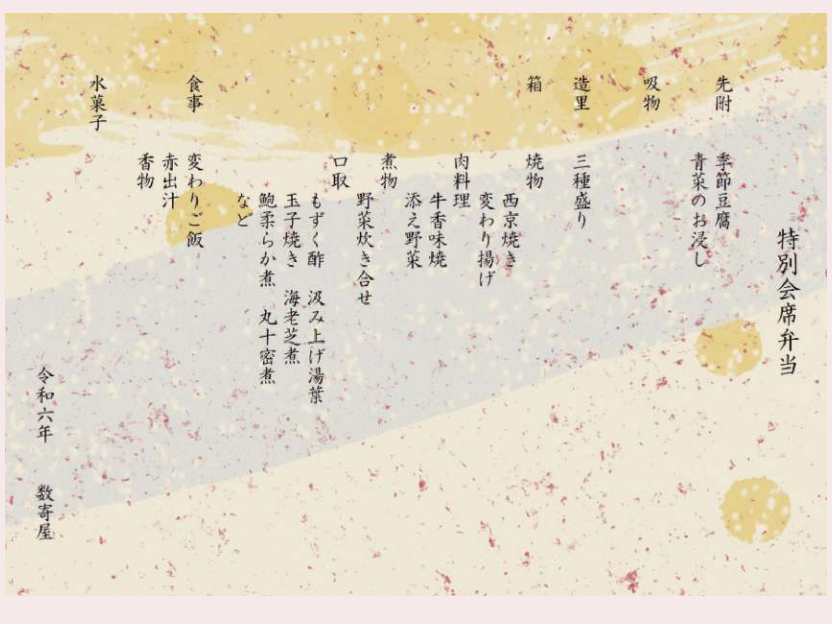 特別会席弁当
先附 季節豆腐
青菜のお浸し
吸物
造里 三種盛り
箱 焼物
西京焼き
変わり揚げ
肉料理
牛香味焼
添え野菜
煮物
野菜炊き合せ
口取
もずく酢 汲み上げ湯葉
玉子焼き 海老芝煮
鮑柔らか煮 丸十密煮
など
食事 変わりご飯
赤出汁
香物
水菓子
令和六年 数寄屋